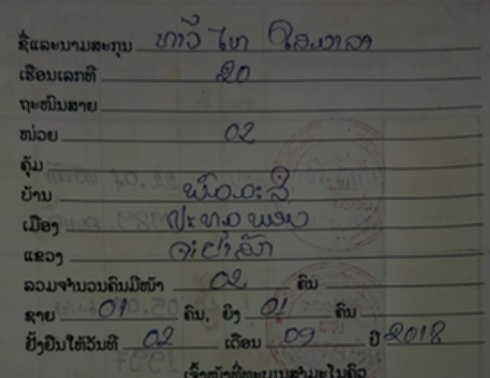 ຊື່ແລະນາມສະກຸນ ທາວີ ໄຫ
ເຮືອນເລກທີ 20
ຖະໜົນສາຍ
ໜ່ວຍ 02
ຄຸ້ມ
ບ້ານ
ເມືອງ ປະທຸມພອນ
ແຂວງ ຈຳປາສັກ
ລວມຈຳນວນຄົນມີໜ້າ 02 ຄົນ
ຊາຍ 01 ຄົນ, ຍິງ 01 ຄົນ
ຢັ້ງຢືນໃຫ້ວັນທີ 02 ເດືອນ 09 ປີ 2018
ເຈົ້າໜ້າທີ່ທະບຽນສຳມະໂນຄົວ